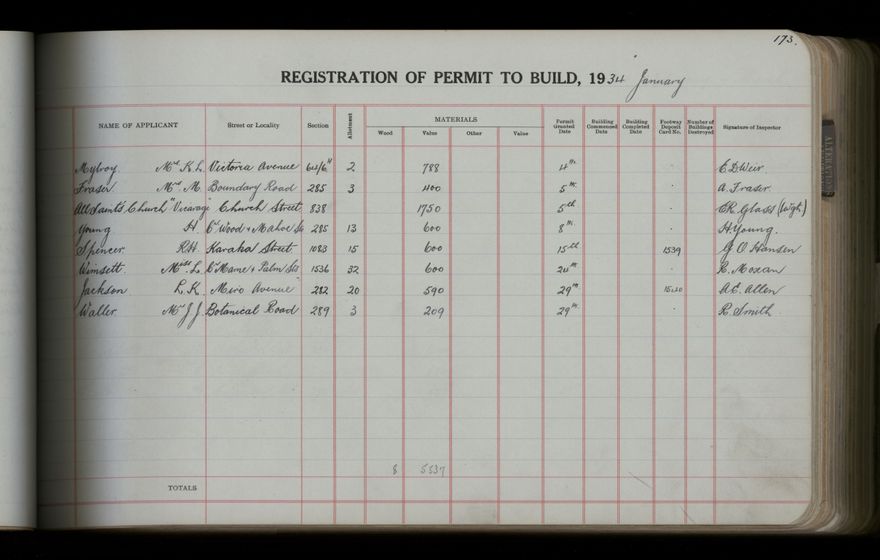 173.
REGISTRATION OF PERMIT TO BUILD, 1934 January
NAME OF APPLICANT Street or Locality Section Allotment MATERIALS Wood Value Other Value Permit Granted Date Building Commenced Date Building Completed Date Footway Deposit Card No. Number of Buildings Destroyed Signature of Inspector
Mylroy. Mrs K. L. Victoria Avenue 2 788 4th E D Weir.
Fraser. Mrs M. Boundary Road 285 3 400 5th A. Fraser.
All Saints Church "Vicarage" Church Street 838 1750 5th
Young H. Cr Wood & Mahoe Sts 285 13 600 8th H. Young.
Spencer. R.H. Karaka Street 1083 15 600 15th 1539 J. O. Hansen
Wimsett. Miss L. Cr Maine & Palm Sts 1536 32 600 24th R. Moxan
Jackson L. K. Miro Avenue 282 20 590 29th A.E. Allen
Waller. Mr J. J. Botanical Road 289 3 209 29th R. Smith.
8 5537
TOTALS